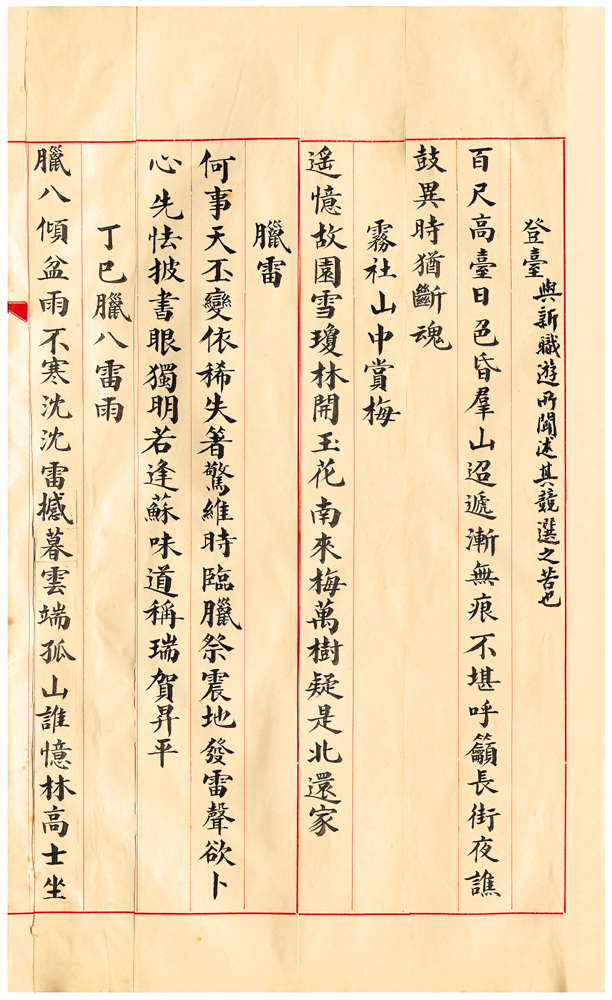 登臺與新職遊所聞述其競選之苦也
百尺高臺日色昏羣山迢遞漸無痕不堪呼籲長街夜譙
鼓異時猶斷魂
霧社山中賞梅
遥憶故園雪瓊林開玉花南來梅萬樹疑是北還家
臘雷
何事天丕變依稀失箸驚維時臨臘祭震地發雷聲欲卜
心先怯披書眼獨明若逢蘇味道稱瑞賀昇平
丁巳臘八雷雨
臘八傾盆雨不寒沈沈雷撼暮雲端孤山誰憶林高士坐